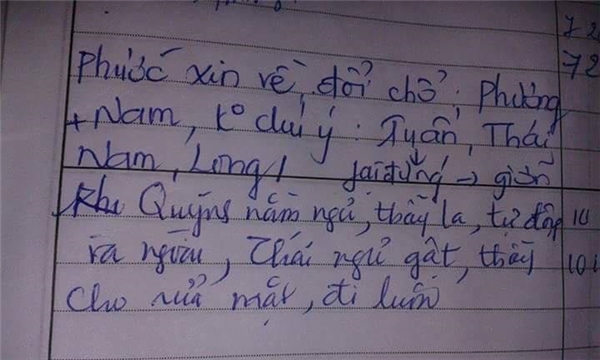 72
Phước xin về, đổi chỗ; Phương 72
+ Nam, ko chú ý: Tuấn, Thái
Nam, Long,
Khi Quỳng nằm ngủ, thầy la, tự động 10
ra ngoài, Thái ngủ gật, thầy 10
cho rửa mặt, đi luôn